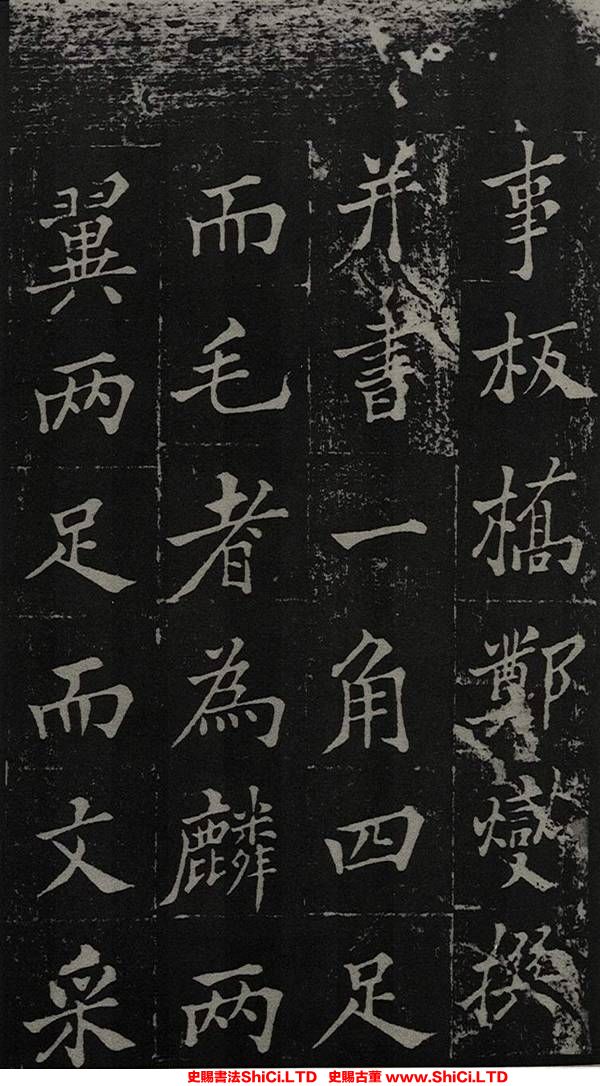 事板橋鄭燮撰
并書一角四足
而毛者為麟兩
翼兩足而文采
史賜書法ShiCi.LTD 史賜古董 www.ShiCi.LTD